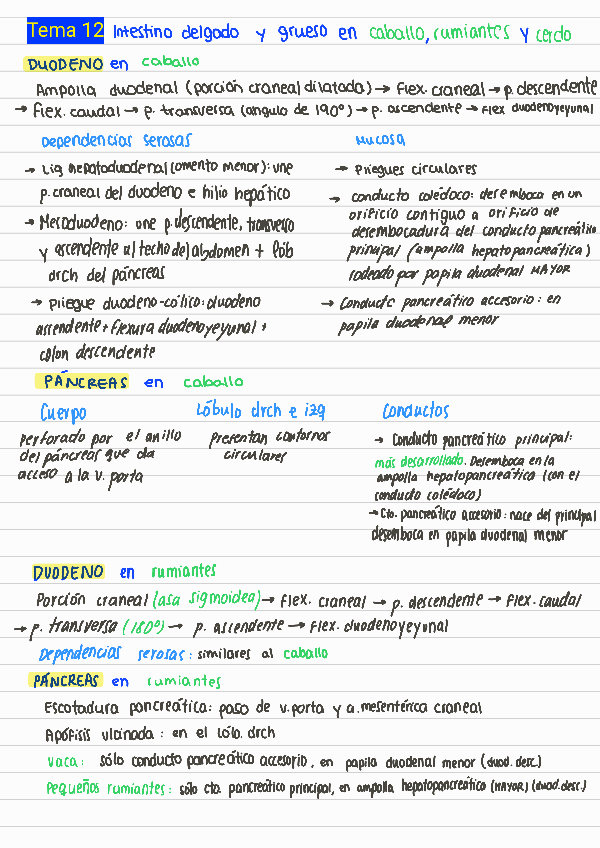 Tema 12 Intestino delgado y grueso en caballo, rumiantes y cerdo
DUODENO en caballo
Ampolla duodenal (porción craneal dilatada) → flex. craneal → p. descendente
→ flex. caudal → p. transversa (angulo de 190º) → p. ascendente → flex duodenoyeyunal
Dependencias serosas
→ Lig hepatoduodenal (omento menor): une
p. craneal del duodeno e hilio hepático
→ Mesoduodeno: une p. descendente, transversa
y ascendente al techo del abdomen + lób
drch del páncreas
→ Pliegue duodeno-cólico: duodeno
ascendente + flexura duodenoyeyunal +
colon descendente
Mucosa
→ Pliegues circulares
→ conducto colédoco: desemboca en un
orificio contiguo a orificio de
desembocadura del conducto pancreático
principal (ampolla hepatopancreática)
rodeado por papila duodenal MAYOR
→ Conducto pancreático accesorio: en
papila duodenal menor
PÁNCREAS en caballo
Cuerpo
Perforado por el anillo
del páncreas que da
acceso a la v. porta
Lóbulo drch e izq
presentan contornos
circulares
Conductos
→ Conducto pancreático principal:
más desarrollado. Desemboca en la
ampolla hepatopancreática (con el
conducto colédoco)
→ Cto. pancreático accesorio: nace del principal
desemboca en papila duodenal menor
DUODENO en rumiantes
Porción craneal (asa sigmoidea) → flex. craneal → p. descendente → Flex. caudal
→ p. transversa (180º) → p. ascendente → Flex. duodenoyeyunal
Dependencias serosas: similares al caballo
PÁNCREAS en rumiantes
Escotadura pancreática: paso de v. porta y a. mesentérica craneal
Apófisis uncinada: en el lób. drch
vaca: sólo conducto pancreático accesorio, en papila duodenal menor (duod. desc.)
Pequeños rumiantes: sólo cto. pancreático principal, en ampolla hepatopancreática (MAYOR) (duod. desc.)